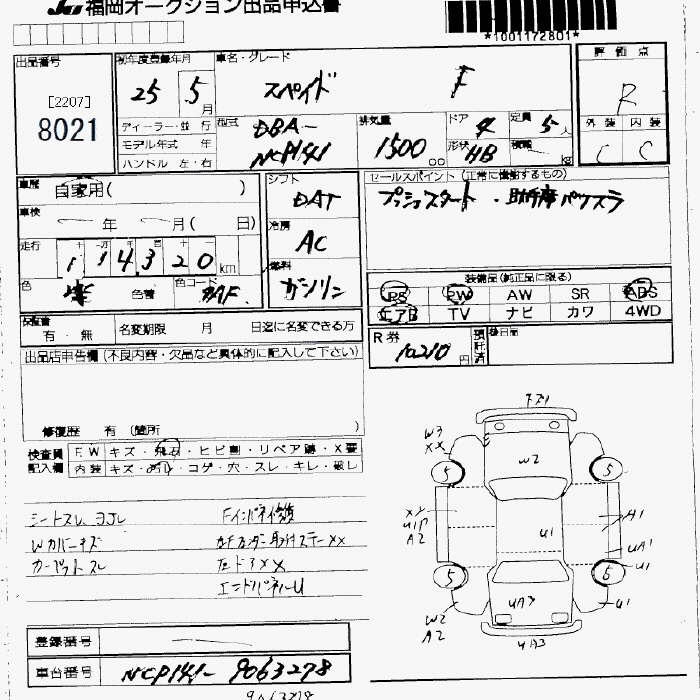 福岡オークション出品申込書
*1001172801*
出品番号
[2207]
8021
初年度登録年月
25 5月
車名・グレード
スペイド F
評価点
R
外装 内装
C C
ディーラー・並行
モデル年式 年
ハンドル 左・右
型式
DBA-
NCP141
排気量
1500cc
ドア
4
定員
5人
形状
HB
積載
kg
車歴
自家用( )
車検
年 月( 日)
走行
114320km
色
色替
色コード
シフト
DAT
冷房
AC
燃料
ガソリン
セールスポイント(正常に機能するもの)
プッシュスタート・助手席パワスラ
装備品(純正品に限る)
PS PW AW SR ABS
エアB TV ナビ カワ 4WD
保証書
有・無
名変期限 月 日迄に名変できる方
R券
10210円
預託済
後日品
出品店申告欄(不良内容・欠品など具体的に記入して下さい)
修復歴 有(箇所 )
検査員記入欄
F.W キズ・飛石・ヒビ割・リペア跡・X要
内装 キズ・汚れ・コゲ・穴・スレ・キレ・破レ
シートスレ、ヨゴレ
Wカバーキズ
カーペットスレ
Fインパネ修復
左Fフェンダー取付ステーXX
左ドアXX
エンドパネルU
W3
XX
W2
5
5
XX
A2
U1
A1
UA1
U1
5
6
W2
A2
UA3
U1
UA3
登録番号
車台番号
NCP141-9063278